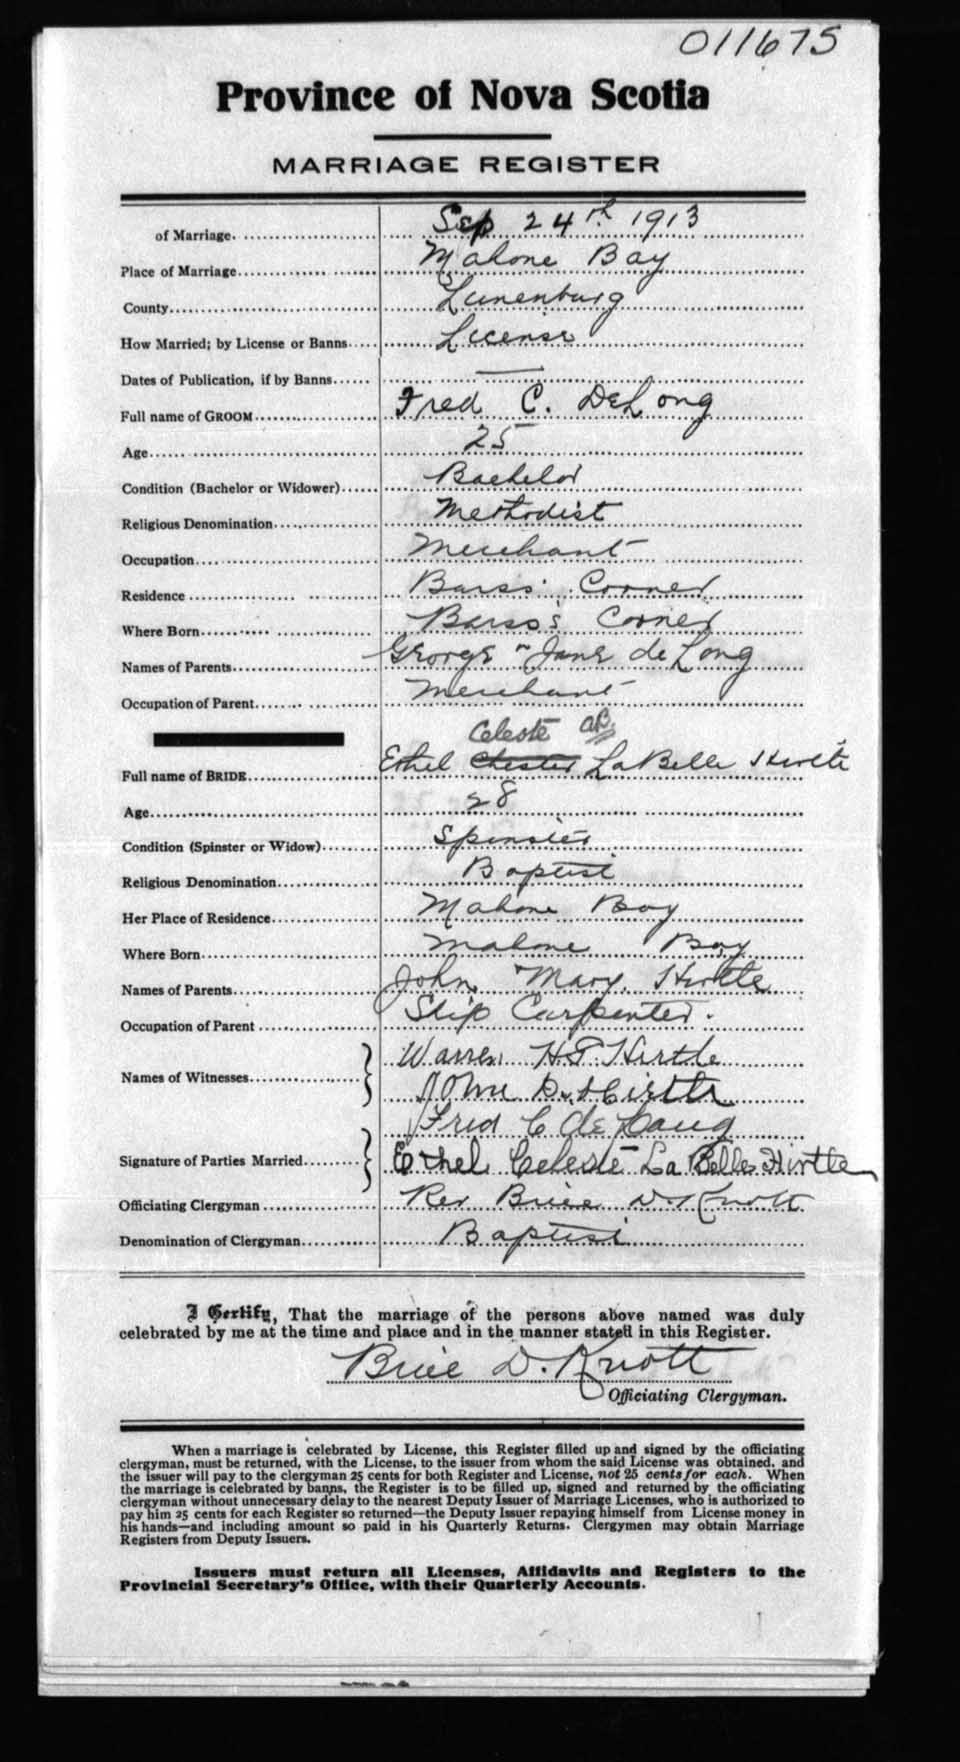 011675
Province of Nova Scotia
MARRIAGE REGISTER
of Marriage. Sep 24th 1913
Place of Marriage Mahone Bay
County Lunenburg
How Married; by License or Banns License
Dates of Publication, if by Banns —
Full name of GROOM Fred C. DeLong
Age 25
Condition (Bachelor or Widower) Bachelor
Religious Denomination Methodist
Occupation Merchant
Residence Barss' Corner
Where Born Barss's Corner
Names of Parents George " Jane de Long
Occupation of Parent Merchant
Celeste
Full name of BRIDE Ethel Chester LaBelle Hirtle
Age 28
Condition (Spinster or Widow) Spinster
Religious Denomination Baptist
Her Place of Residence Mahone Bay
Where Born Mahone Bay
Names of Parents John " Mary Hirtle
Occupation of Parent Ship Carpenter.
Names of Witnesses Warren H. T. Hirtle
John D. Hirtle
Fred C de Long
Signature of Parties Married Ethel Celeste La Belle Hirtle
Officiating Clergyman Rev Brice D Knott
Denomination of Clergyman Baptist
I Certify, That the marriage of the persons above named was duly
celebrated by me at the time and place and in the manner stated in this Register.
Brice D. Knott
Officiating Clergyman.
When a marriage is celebrated by License, this Register filled up and signed by the officiating
clergyman, must be returned, with the License, to the issuer from whom the said License was obtained, and
the issuer will pay to the clergyman 25 cents for both Register and License, not 25 cents for each. When
the marriage is celebrated by banns, the Register is to be filled up, signed and returned by the officiating
clergyman without unnecessary delay to the nearest Deputy Issuer of Marriage Licenses, who is authorized to
pay him 25 cents for each Register so returned—the Deputy Issuer repaying himself from License money in
his hands—and including amount so paid in his Quarterly Returns. Clergymen may obtain Marriage
Registers from Deputy Issuers.
Issuers must return all Licenses, Affidavits and Registers to the
Provincial Secretary's Office, with their Quarterly Accounts.